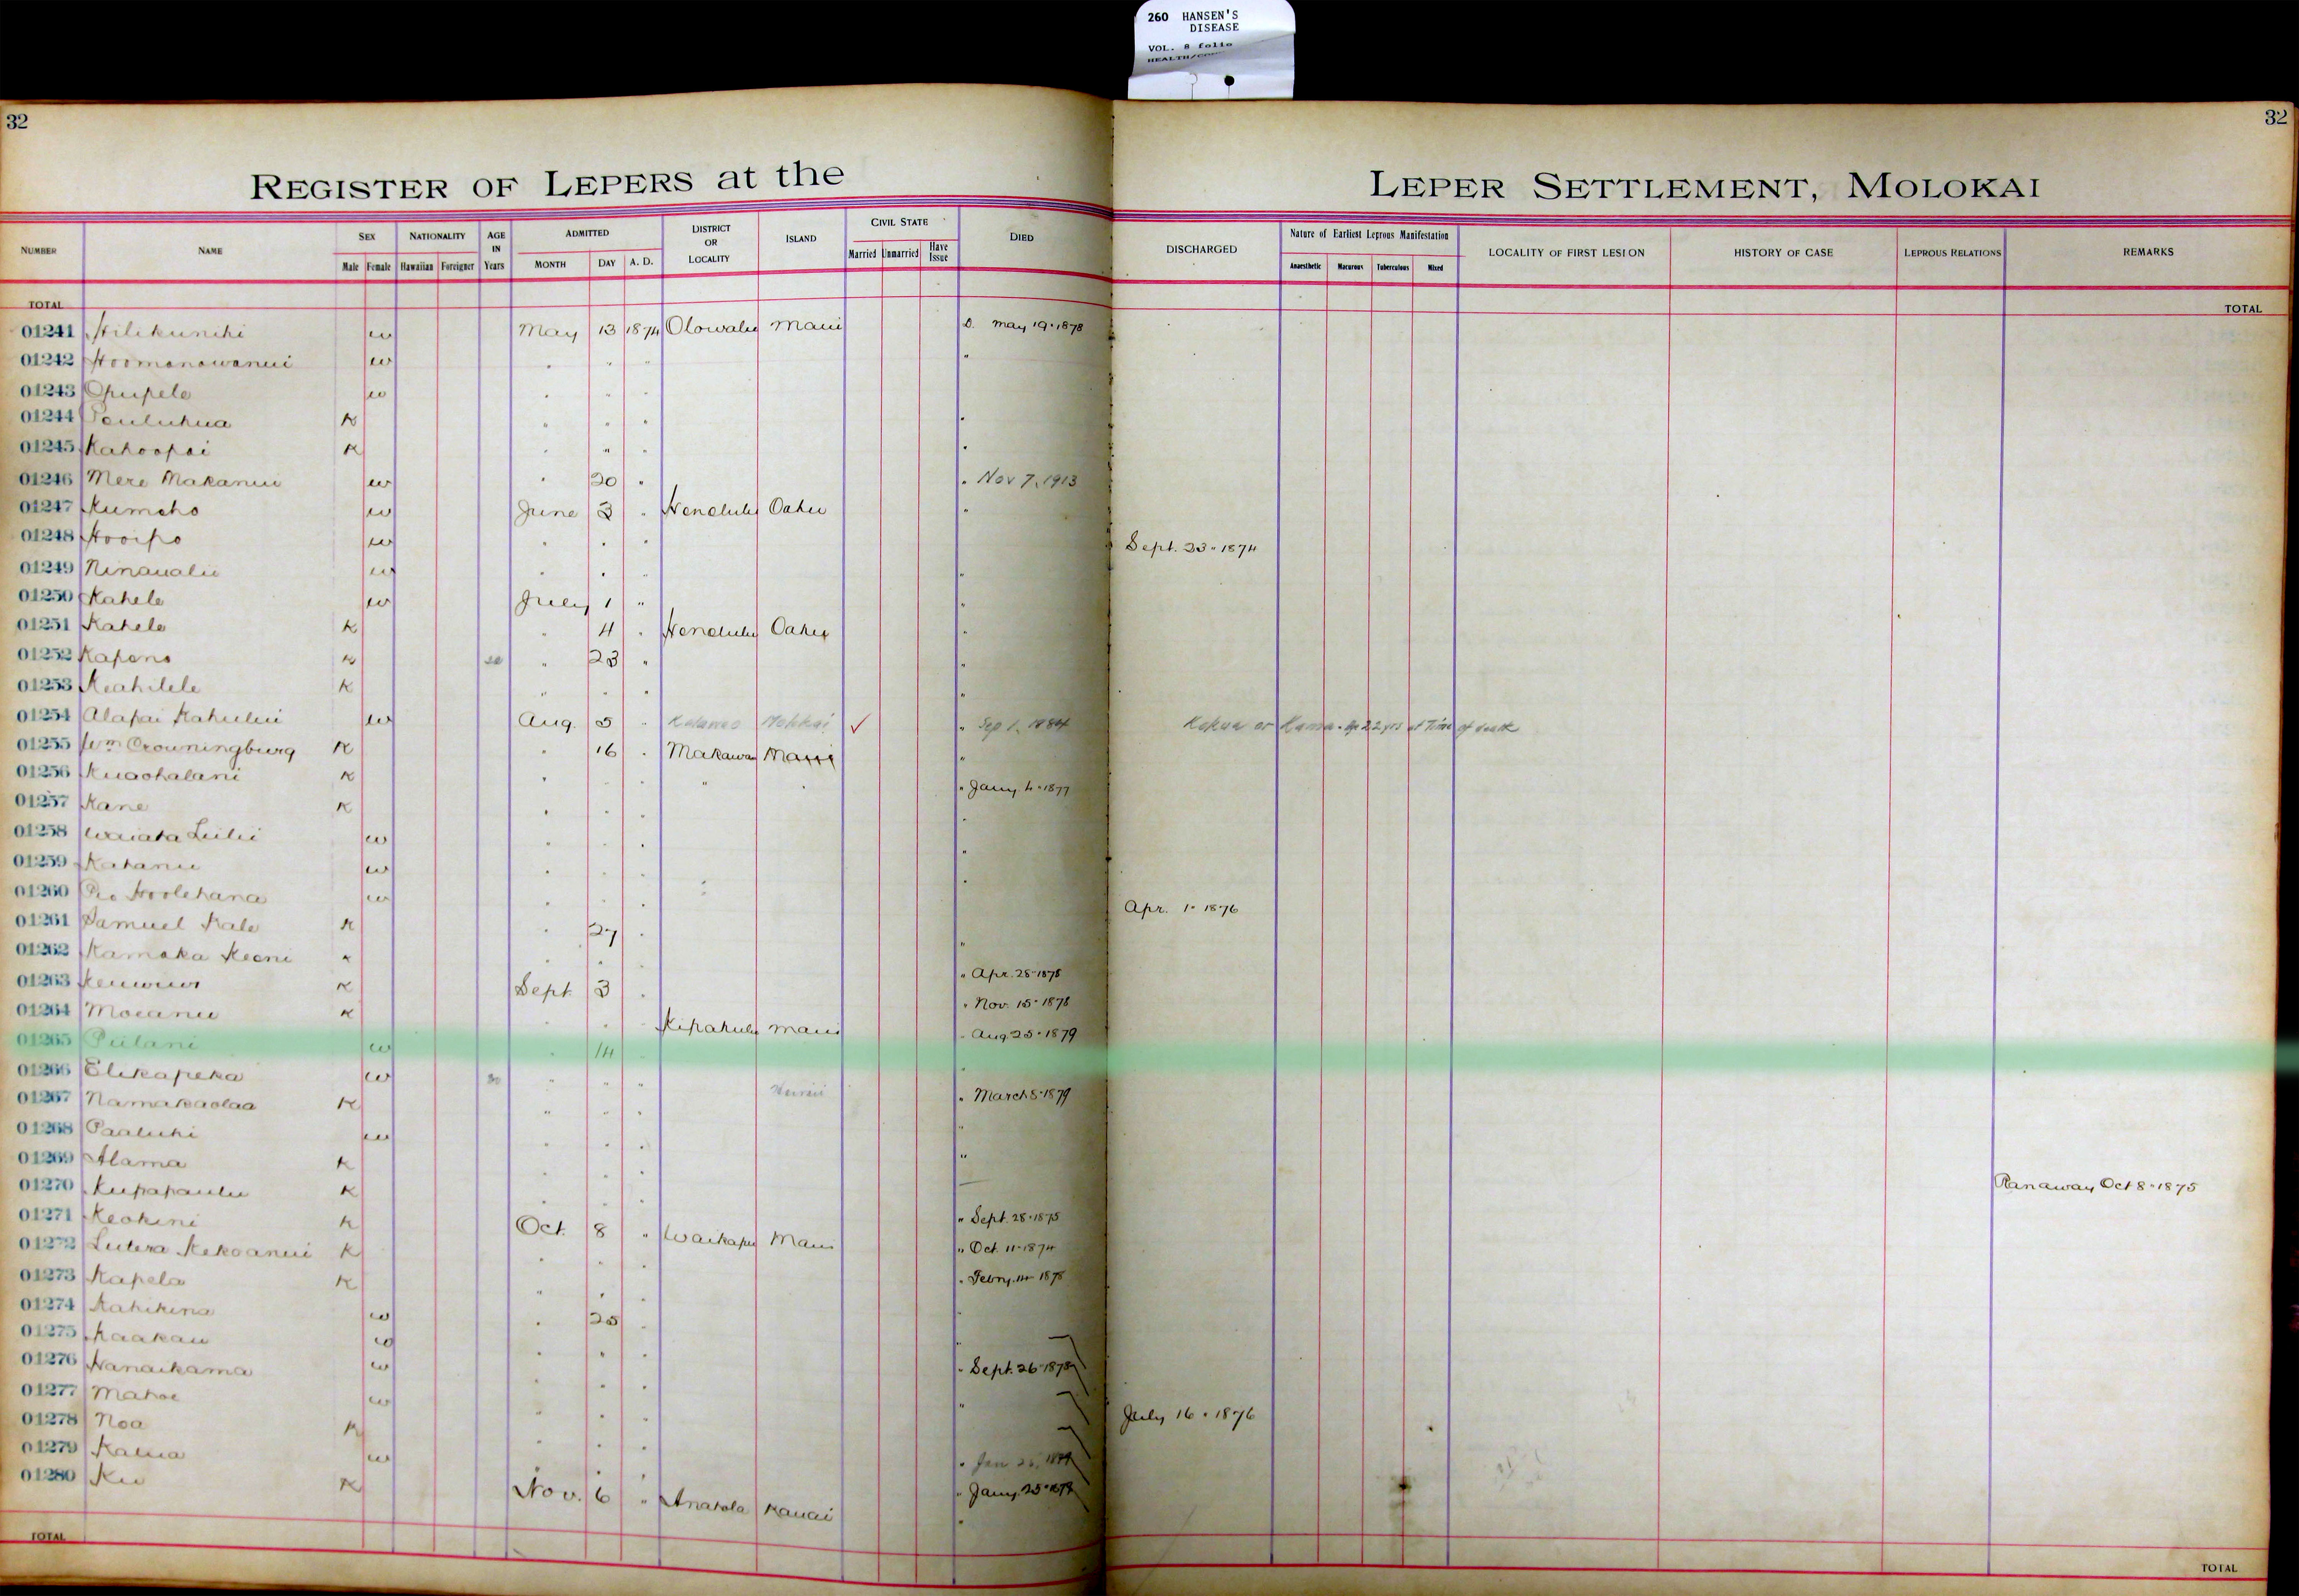 260 HANSEN'S
DISEASE
VOL. 8 folio
32
32
REGISTER OF LEPERS at the LEPER SETTLEMENT, MOLOKAI
NUMBER NAME SEX NATIONALITY AGE IN Years ADMITTED DISTRICT OR LOCALITY ISLAND CIVIL STATE DIED DISCHARGED Nature of Earliest Leprous Manifestation LOCALITY OF FIRST LESION HISTORY OF CASE LEPROUS RELATIONS REMARKS
Male Female Hawaiian Foreigner MONTH DAY A. D. Married Unmarried Have Issue Anaesthetic Macurous Tuberculous Mixed
TOTAL TOTAL
01241 Hilikunihi w May 13 1874 Olowalu Maui D. May 19 · 1878
01242 Hoomanawanui w " " " "
01243 Opupele w " " "
01244 K " " " "
01245 Kahoopai K " " " "
01246 Mere Makanui w " 20 " " Nov 7, 1913
01247 Kumeho w June 3 " Honolulu Oahu "
01248 Hooipo w " " " Sept. 23 · 1874
01249 Ninaualu w " " " "
01250 Kahele w July 1 " "
01251 Kahele K " 4 " Honolulu Oahu "
01252 Kapono K " 23 " "
01253 Keahilele K " " " "
01254 Alapai Kahului w Aug. 5 " Molokai ✓ " Sep 1, 1884 Kokua or Kamaa. Age 22 yrs at Time of death
01255 Wm Crowningburg K " 16 " Makawao Maui "
01256 Kuaohalani K " " " " " " Jany 4 · 1877
01257 Kane K " " " "
01258 Waiaka Liilii w " " " "
01259 Kahanu w " " " "
01260 Hoolehana w " " " " Apr. 1 · 1876
01261 Samuel Kale K " 27 " "
01262 Kamaka Keoni K " " " " Apr. 28 · 1878
01263 K Sept 3 " " Nov. 15 · 1878
01264 Moeanu K " " " Kipahulu Maui " Aug 25 · 1879
01265 Piilani w " 14 "
01266 Elikapeka w 30 " " " Hawaii " March 8 · 1879
01267 Namakaolaa K " " " "
01268 Paaluhi w " " " "
01269 Alama K " " "
01270 Kupapaulu K " " " Ranaway Oct 8 · 1875
01271 Keokini K Oct. 8 " Waikapu Maui " Sept. 28 · 1875
01272 Lutera Kekoanui K " " " " Oct. 11 · 1874
01273 Kapela K " " " " Febry. 14 · 1878
01274 Kahikina w " 25 " "
01275 Kaakau w " " " "
01276 Nanaikama w " " " " Sept. 26 · 1878
01277 Mahoe w " " " "
01278 Noa K " " " July 16 · 1876
01279 Kalua w " " " " Jan 26,
01280 Ku K Nov. 6 " Anahola Kauai " Jany. 25 ·
TOTAL TOTAL